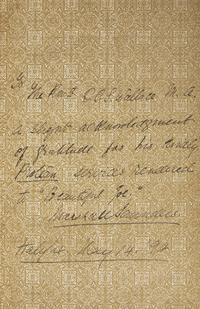 To
The Rev. O. C. S. Wallace M. A.
A slight acknowledgment
of gratitude for his kindly
Protean services rendered
to "Beautiful Joe"
Marshall Saunders
Halifax May 14. '94